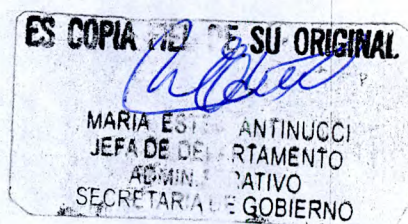 ES COPIA DE SU ORIGINAL
MARIA ANTINUCCI
JEFA DE DEPARTAMENTO
ADMINISTRATIVO
SECRETARIA DE GOBIERNO